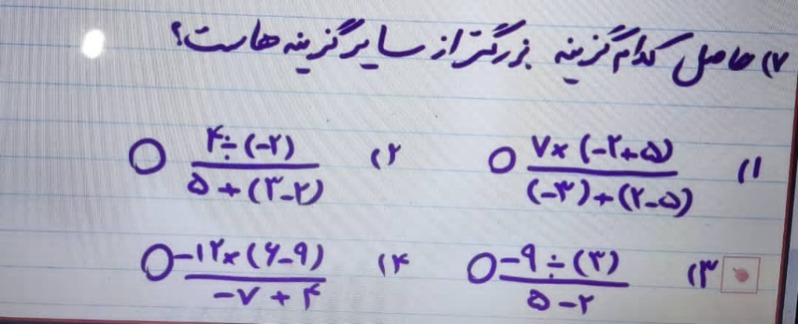 ۷) حاصل کدام گزینه بزرگتر از سایر گزینه هاست؟
۱) ۷×(-۲+۵) / (-۳)+(۲-۵)
۲) ۴÷(-۲) / ۵+(۳-۲)
۳) -۹÷(۳) / ۵-۲
۴) -۱۲×(۶-۹) / -۷+۴